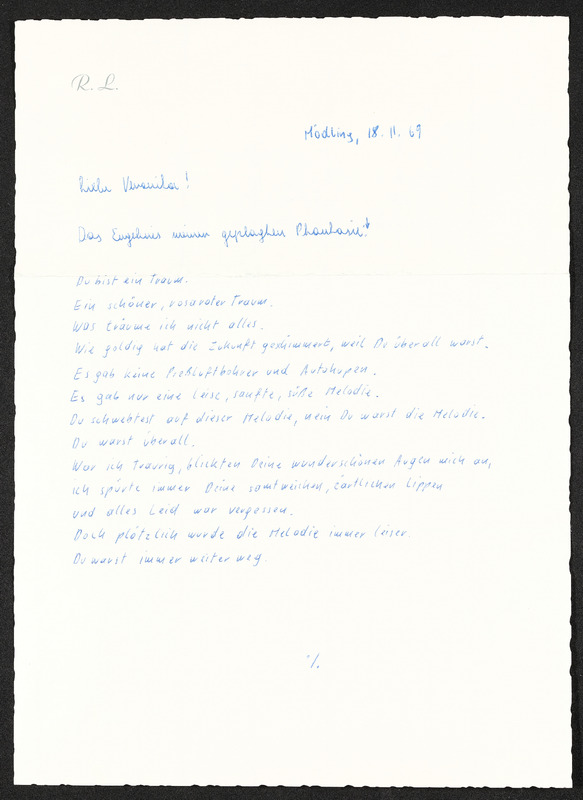 R. L.
Mödling, 18. 11. 69
Liebe Veronika!
Das Ergebnis meiner geplagten Phantasie!
Du bist ein Traum.
Ein schöner, rosaroter Traum.
Was träume ich nicht alles.
Wie goldig hat die Zukunft geshimmert, weil Du überall warst.
Es gab keine Preßluftbohrer und Autohupen.
Es gab nur eine leise, sanfte, süße Melodie.
Du schwebtest auf dieser Melodie, nein Du warst die Melodie.
Du warst überall.
War ich Traurig, blickten Deine wunderschönen Augen mich an,
ich spürte immer Deine samtweichen, zärtlichen Lippen
und alles Leid war vergessen.
Doch plötzlich wurde die Melodie immer leiser.
Du warst immer weiter weg.
·/.